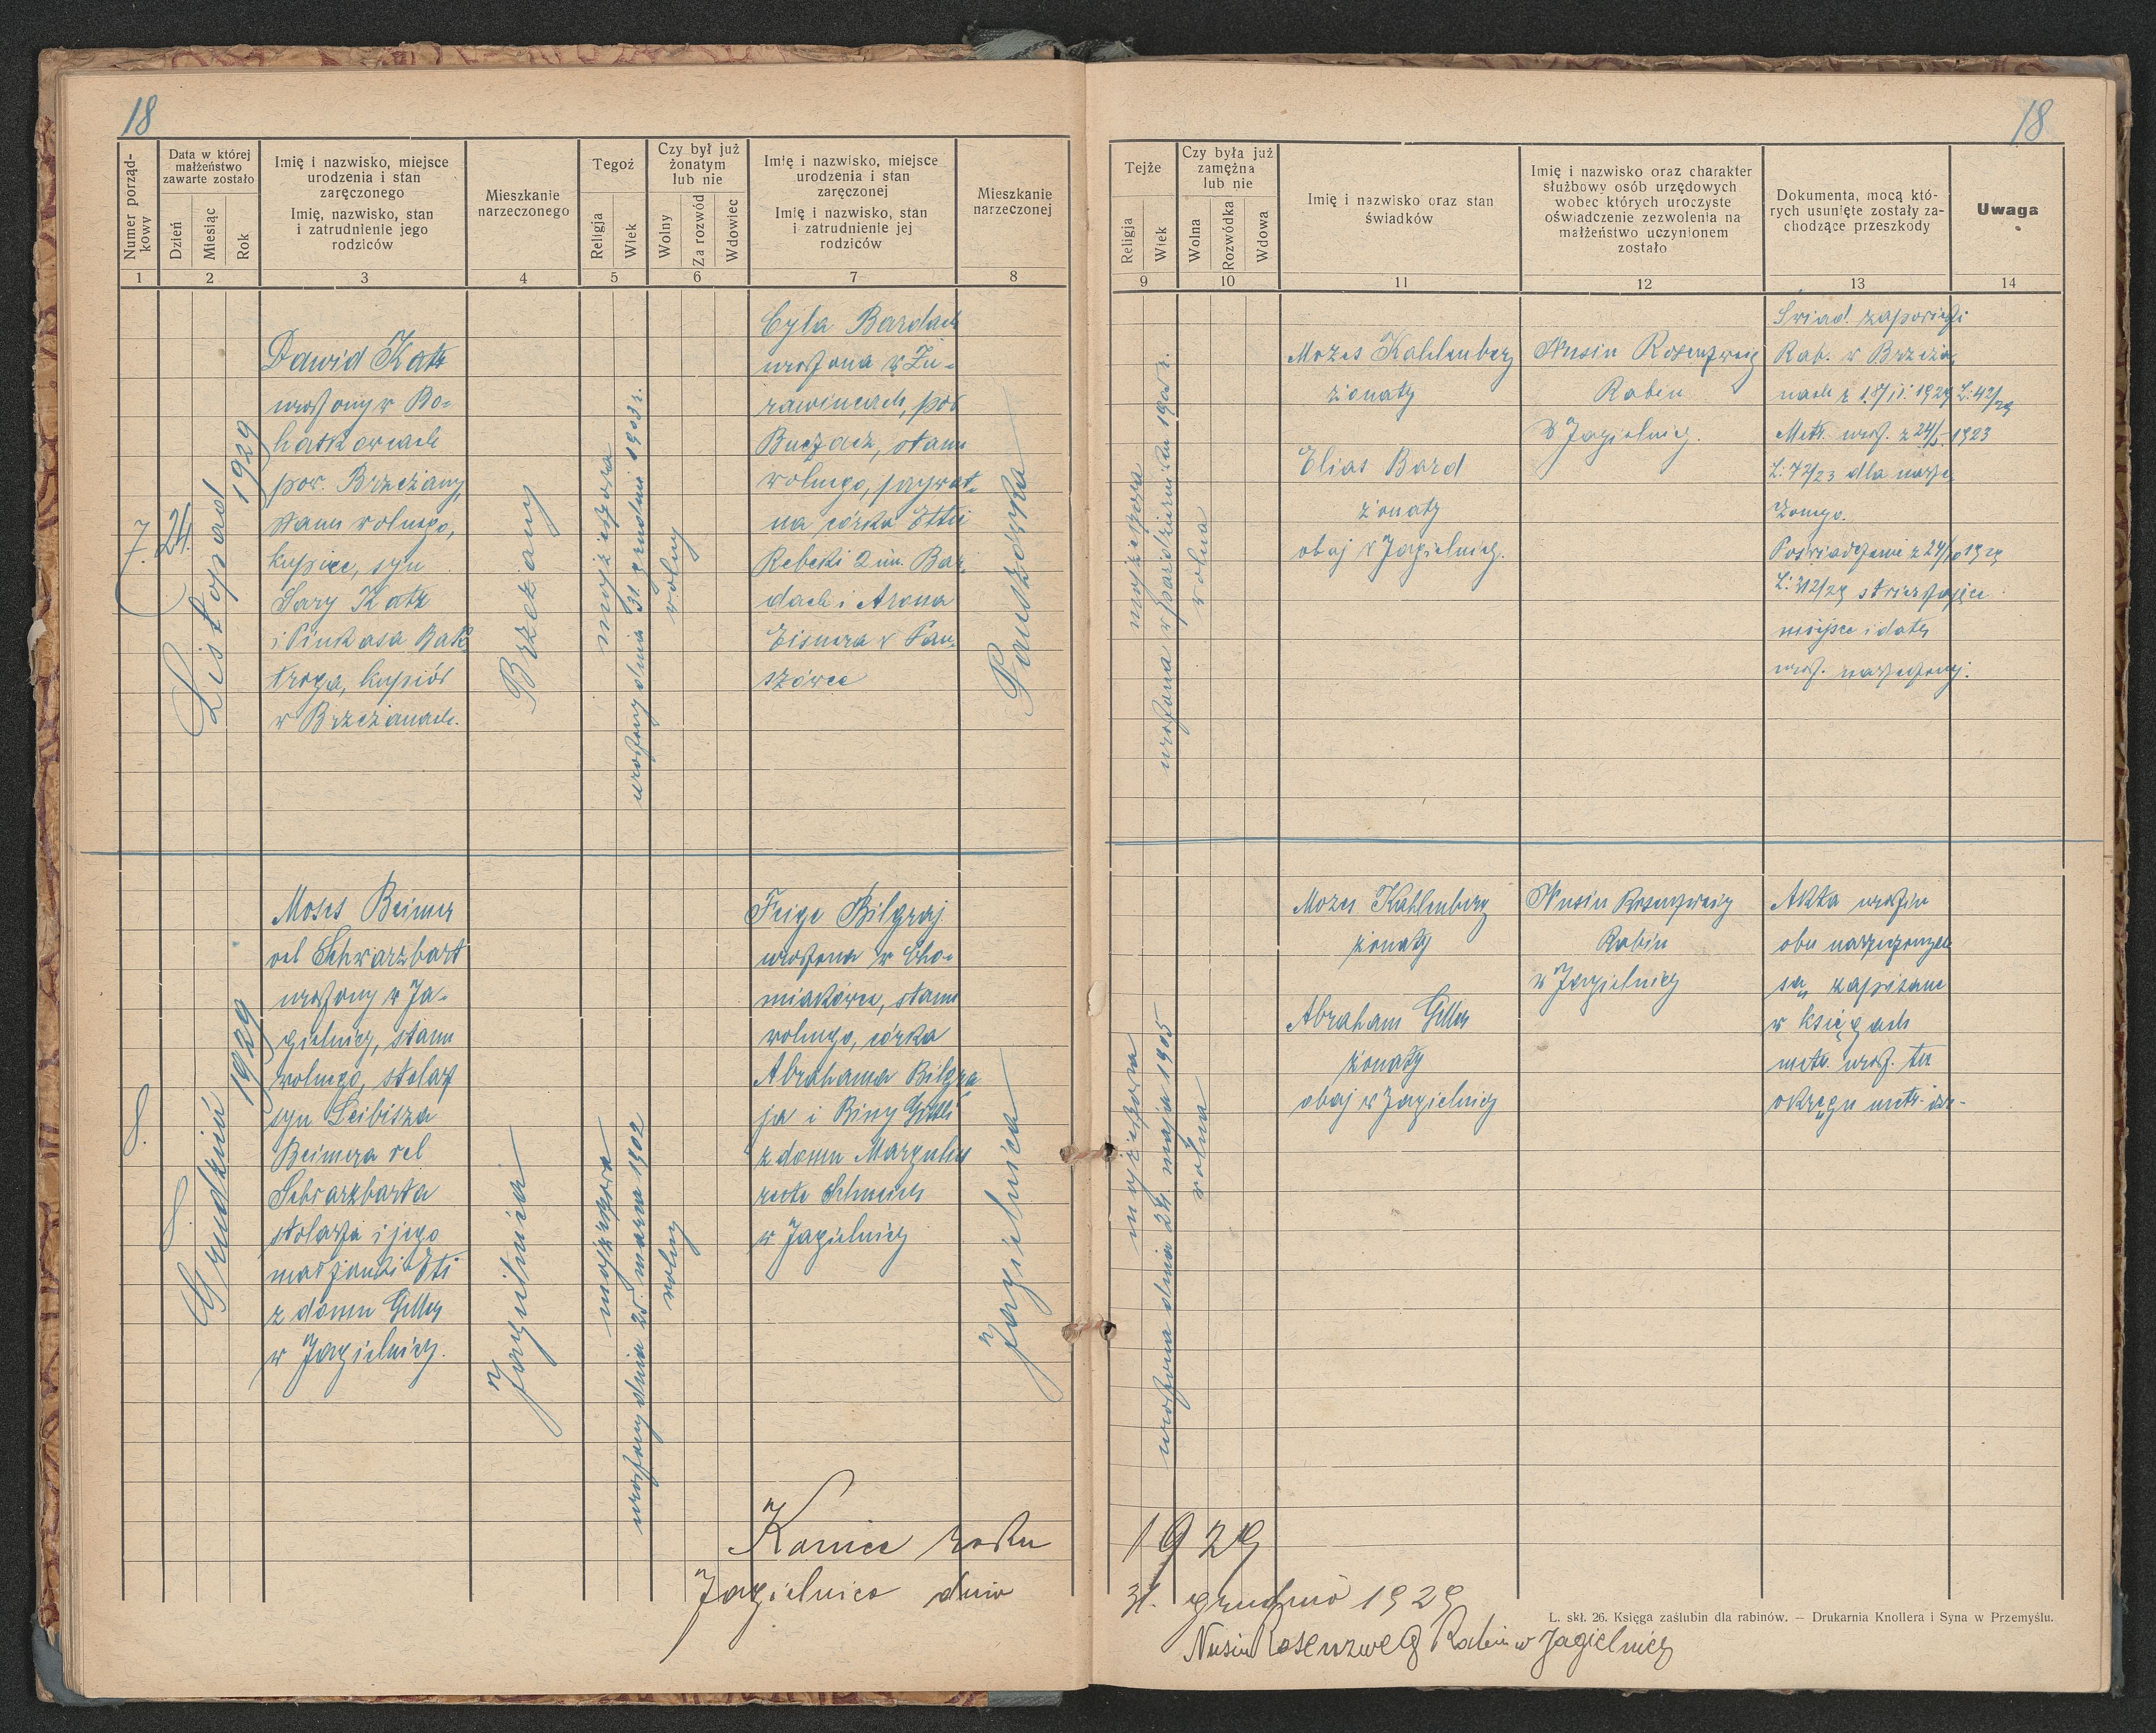 18
18
Numer porząd-
kowy
Data w której
małżeństwo
zawarte zostało
Dzień
Miesiąc
Rok
Imię i nazwisko, miejsce
urodzenia i stan
zaręczonego
Imię, nazwisko, stan
i zatrudnienie jego
rodziców
Mieszkanie
narzeczonego
Tegoż
Religja
Wiek
Czy był już
żonatym
lub nie
Wolny
Za rozwód
Wdowiec
Imię i nazwisko, miejsce
urodzenia i stan
zaręczonej
Imię i nazwisko, stan
i zatrudnienie jej
rodziców
Mieszkanie
narzeczonej
Tejże
Religja
Wiek
Czy była już
zamężna
lub nie
Wolna
Rozwódka
Wdowa
Imię i nazwisko oraz stan
świadków
Imię i nazwisko oraz charakter
służbowy osób urzędowych
wobec których uroczyste
oświadczenie zezwolenia na
małżeństwo uczynionem
zostało
Dokumenta, mocą któ-
rych usunięte zostały za-
chodzące przeszkody
Uwaga
1 2 3 4 5 6 7 8 9 10 11 12 13 14
7.
24.
Listopad
1929
Dawid Katz
urodzony w Bo-
hatkowcach
pow. Brzeżany,
stanu wolnego,
kupiec, syn
Sary Katz
i Pinkasa
kupców
w Brzeżanach.
Brzeżany
mojżeszowa
urodzony dnia 31. grudnia 1903 r.
wolny
Cyla Bardach
urodzona w Żu-
rawincach, pow
Buczacz, stanu
wolnego, prywat-
na córka Ettii
Rebeki 2 im. Bar-
dach i Arona
Eisnera w Pau-
szówce
Pauszówka
mojżeszowa
urodzona w październiku r.
wolna
Mozes Kahlenberg
żonaty
Elias Bard
żonaty
obaj w Jagielnicy.
Nusin Rosenzweig
Rabin
w Jagielnicy.
Świad. zapowiedzi
Rab. w Brzeża-
nach z 18/11. 1929 L: 42/29
Metr. urodz. z 24/5. 1923
L: 72/23 dla narze-
czonego.
Poświadczenie z 24/10 1929
L: 312/29 stwierdzające
miejsce i datę
urodz. narzeczonej.
8.
8.
Grudzień
1929
Moses Beimer
vel Schwarzbart
urodzony w Ja-
gielnicy, stanu
wolnego, stolarz
syn Leibisza
Beimera vel
Schwarzbarta
stolarza i jego
małżonki Eti
z domu Geller
w Jagielnicy.
Jagielnica
mojżeszowa
urodzony dnia 25. marca 1902
wolny
Feige Bilgraj
urodzona w Cho-
miakówce, stanu
wolnego, córka
Abrahama Bilgra-
ja i Biny Gitli
z domu Margulies
recte
w Jagielnicy
Jagielnica
mojżeszowa
urodzona dnia 24 maja 1905
wolna
Mozes Kahlenberg
żonaty
Abraham Geller
żonaty
obaj w Jagielnicy
Nusin Rosenzweig
Rabin
w Jagielnicy
Akta urodzin
obu narzeczonych
są zapisane
w księgach
metr. urodz. tu.
okręgu metr.
Koniec roku 1929
Jagielnica dnia 31. grudnia 1929
Nusin Rosenzweig Rabin w Jagielnicy
L. skł. 26. Księga zaślubin dla rabinów. — Drukarnia Knollera i Syna w Przemyślu.